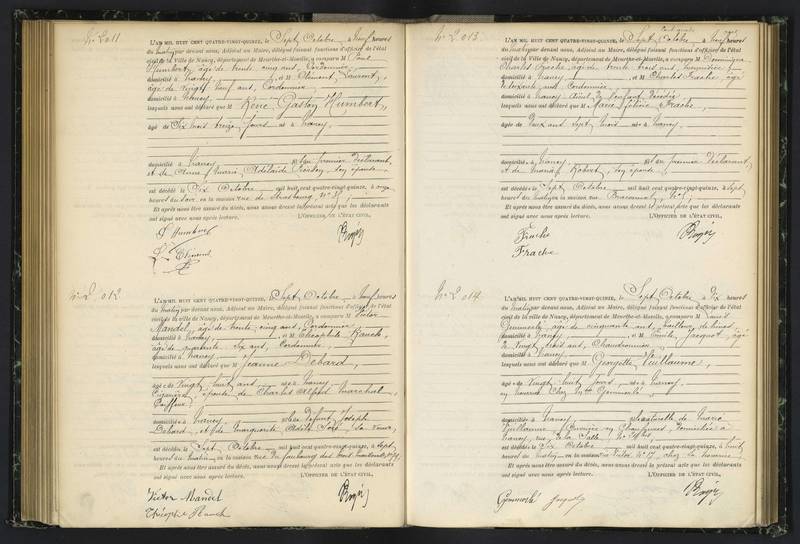 N° 2.011
L'AN MIL HUIT CENT QUATRE-VINGT-QUINZE, le Sept Octobre à neuf heures
du matin par devant nous, Adjoint au Maire, délégué faisant fonctions d'officier de l'état
civil de la Ville de Nancy, département de Meurthe-et-Moselle, a comparu M Paul
Humbert, âgé de trente cinq ans, Cordonnier,
domicilié à Nancy, et M Clément Laurent,
âgé de vingt neuf ans, Cordonnier,
domicilié à Nancy
lesquels nous ont déclaré que M René Gaston Humbert,
âgé de Six mois treize jours né à Nancy.
domicilié à Nancy, fils du premier déclarant,
et de Anne Marie Adélaïde, son épouse
est décédé le Six Octobre mil huit cent quatre-vingt-quinze, à onze
heures du soir, en la maison rue de Strasbourg, N°
Et après nous être assuré du décès, nous avons dressé le présent acte que les déclarants
ont signé avec nous après lecture. L'OFFICIER DE L'ÉTAT CIVIL,
P. Humbert
L. Clément
N° 2.012
L'AN MIL HUIT CENT QUATRE-VINGT-QUINZE, le Sept Octobre à neuf heures
du matin par devant nous, Adjoint au Maire, délégué faisant fonctions d'officier de l'état
civil de la Ville de Nancy, département de Meurthe-et-Moselle, a comparu M Victor
Mandel, âgé de trente cinq ans, Cordonnier
domicilié à Nancy, et M Théophile Rauch,
âgé de quarante six ans, Cordonnier,
domicilié à Nancy
lesquels nous ont déclaré que M Jeanne Debard,
âgée de vingt huit ans, née à Nancy
Cigarière, épouse de Charles Alfred Marchal,
Coiffeur
domiciliée à Nancy, fille de défunt Joseph
Debard, et de Marguerite sa veuve,
est décédée le Sept Octobre mil huit cent quatre-vingt-quinze, à sept
heures du matin, en la maison rue du faubourg des trois maisons, N°
Et après nous être assuré du décès, nous avons dressé le présent acte que les déclarants
ont signé avec nous après lecture. L'OFFICIER DE L'ÉTAT CIVIL,
Victor Mandel
Théophile Rauch
N° 2.013
L'AN MIL HUIT CENT QUATRE-VINGT-QUINZE, le Sept Octobre à neuf heures
du matin par devant nous, Adjoint au Maire, délégué faisant fonctions d'officier de l'état
civil de la Ville de Nancy, département de Meurthe-et-Moselle, a comparu M Dominique
Charles Frache, âgé de trente trois ans,
domicilié à Nancy, et M Charles Frache, âgé
de soixante ans, Cordonnier,
domicilié à Nancy, aïeul de l'enfant décédée
lesquels nous ont déclaré que M Marie Frache,
âgée de deux ans sept mois née à Nancy.
domiciliée à Nancy, fille du premier déclarant,
et de Maria Robert, son épouse,
est décédée le Sept Octobre mil huit cent quatre-vingt-quinze, à sept
heures du matin, en la maison rue Braconnot, N°
Et après nous être assuré du décès, nous avons dressé le présent acte que les déclarants
ont signé avec nous après lecture. L'OFFICIER DE L'ÉTAT CIVIL,
Frache
Frache
N° 2.014
L'AN MIL HUIT CENT QUATRE-VINGT-QUINZE, le Sept Octobre à dix heures
du matin par devant nous, Adjoint au Maire, délégué faisant fonctions d'officier de l'état
civil de la Ville de Nancy, département de Meurthe-et-Moselle, a comparu M Louis
âgé de cinquante ans, tailleur de limes
domicilié à Nancy, et M Emile Jacquot, âgé
de vingt trois ans, Chaudronnier,
domicilié à Nancy
lesquels nous ont déclaré que M Georgette Vuillaume,
âgée de Vingt huit jours née à Nancy.
en nourrice chez Mme
domiciliée à Nancy, fille naturelle de Maria
Vuillaume, ouvrière en chaussures, domiciliée à
Nancy, rue de la Salle, N°
est décédée le Six Octobre mil huit cent quatre-vingt-quinze, à huit
heures du matin, en la maison N° 17, chez la nourrice
Et après nous être assuré du décès, nous avons dressé le présent acte que les déclarants
ont signé avec nous après lecture. L'OFFICIER DE L'ÉTAT CIVIL,